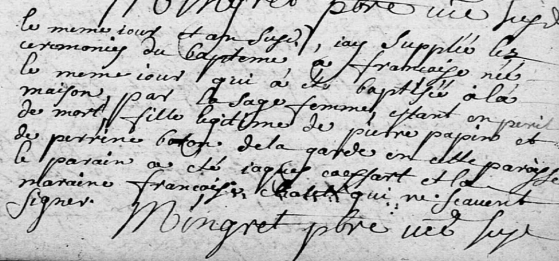 Mingret pbre
le meme jour et an susd, jay supplié les
ceremonies du bapteme a francoise née
le meme jour qui a été baptisée a la
maison par la sage femme estant en peril
de mort, fille legitime de pierre papin et
de perrine boton de la garde en cette paroisse
le parain a été jaques cassart et la
maraine francoise qui ne scavent
signer. Mingret pbre